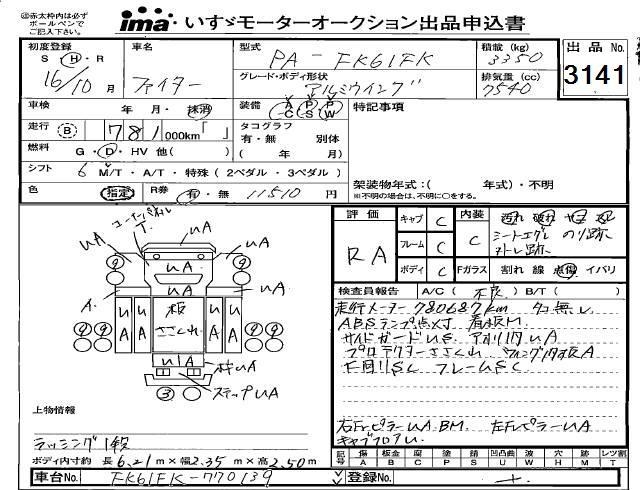 ㊟赤太枠内は必ず
ボールペンで
ご記入下さい。
ima いすゞモーターオークション出品申込書
初度登録
S・H・R
16/10月
車名
ファイター
型式
PA-FK61FK
グレード・ボディ形状
アルミウイング
積載(kg)
3350
排気量(cc)
7540
出品No.
3141
車検
年・月・抹消
装備
A/C P/S P/W
特記事項
走行 B 781,000km「 」
タコグラフ
有・無 別体
( 年 月)
燃料 G・D・HV 他( )
シフト 6 M/T・A/T・特殊(2ペダル・3ペダル)
色 指定 R券 有・無 11510円
架装物年式:( 年式)・不明
※不明の場合は、不明に○をする。
評価
RA
キャブ C
フレーム C
ボディ C
内装
C
シートエグレ のり跡
Fガラス 割れ 線 点傷 イバリ
検査員報告 A/C(不良)B/T( )
走行メーター780687km タコ無し
ABSランプ点灯 看板M
サイドガードUS アオリ内UA
プロテクターささくれ ウイング内皮A
下回りSC フレームSC
右FピラーUA BM 左FピラーUA
キャブフロアU
コーナーパネル
UA
UA
UA
UA
A
A
UA
UA
板
ささくれ
UA
UA
UA
ステップUA
上物情報
ラッシング1段
ボディ内寸約 長6.21m×幅2.35m×高2.50m
記号 傷A 板金B 腐C 塗P 錆S 凹凸曲U 波W 穴H 跡M レツ割T
車台No. FK61FK-770139
登録No.